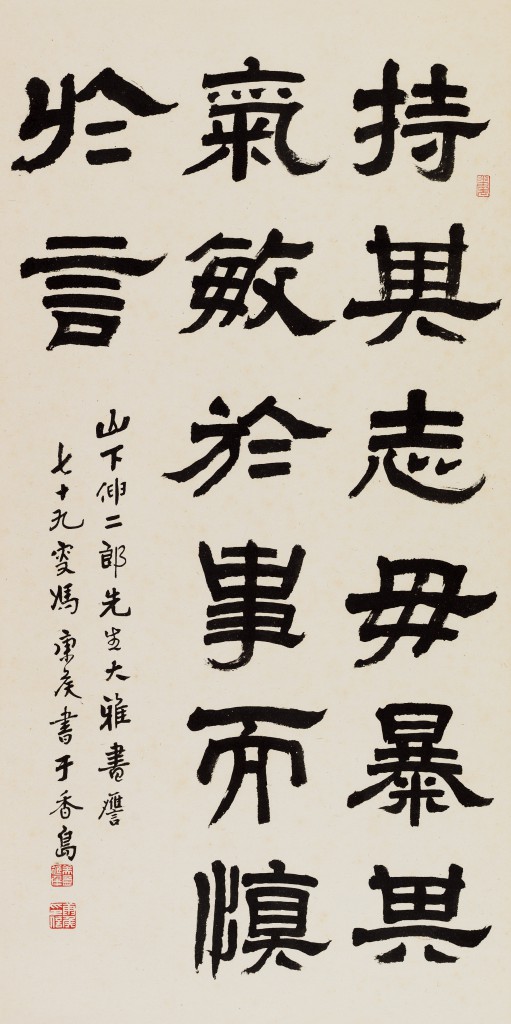 持其志毋暴其
氣敏於事而慎
於言
山下伸二郎先生大雅書譍
七十九叟馮康矦書于香島